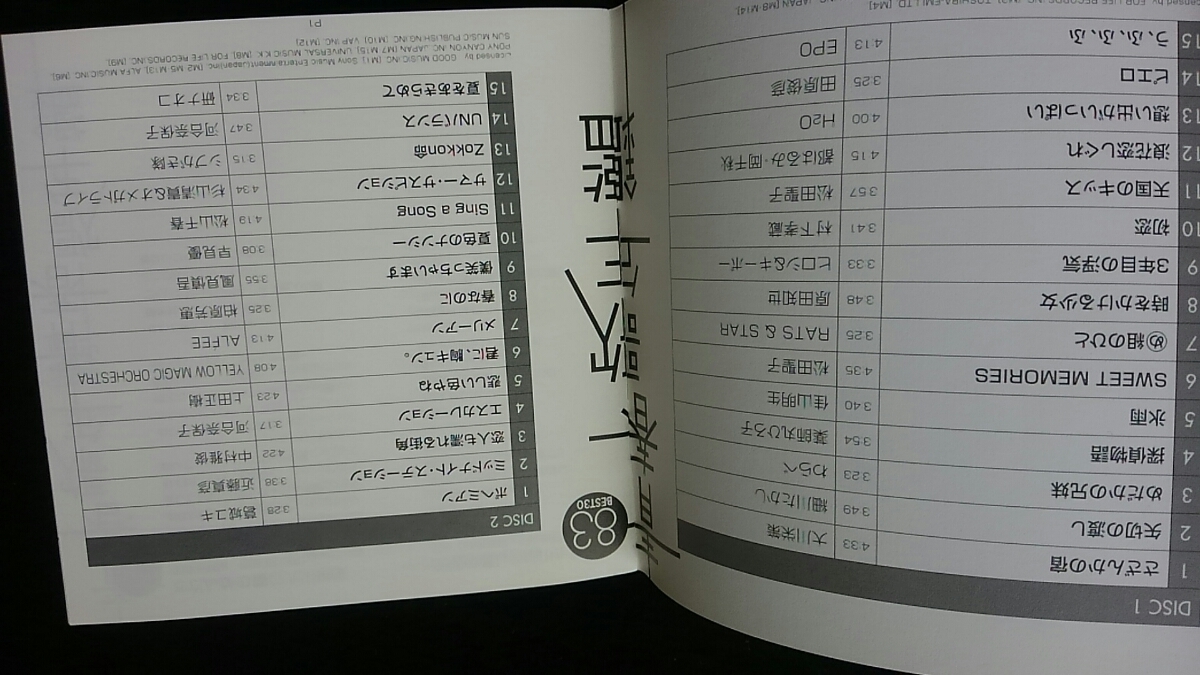 青春歌年鑑
83
BEST30
DISC 1
1 さざんかの宿 大川栄策 4:33
2 矢切の渡し 細川たかし 3:49
3 めだかの兄妹 わらべ 3:23
4 探偵物語 薬師丸ひろ子 3:54
5 氷雨 佳山明生 3:40
6 SWEET MEMORIES 松田聖子 4:35
7 め組のひと RATS & STAR 3:25
8 時をかける少女 原田知世 3:48
9 3年目の浮気 ヒロシ&キーボー 3:33
10 初恋 村下孝蔵 3:41
11 天国のキッス 松田聖子 3:57
12 浪花恋しぐれ 都はるみ・岡千秋 4:15
13 想い出がいっぱい H2O 4:00
14 ピエロ 田原俊彦 3:25
15 う、ふ、ふ、ふ EPO 4:13
DISC 2
1 ボヘミアン 葛城ユキ 3:28
2 ミッドナイト・ステーション 近藤真彦 3:38
3 恋人も濡れる街角 中村雅俊 4:22
4 エスカレーション 河合奈保子 3:17
5 悲しい色やね 上田正樹 4:23
6 君に、胸キュン。 YELLOW MAGIC ORCHESTRA 4:08
7 メリーアン ALFEE 4:13
8 春なのに 柏原芳恵 3:25
9 僕笑っちゃいます 風見慎吾 3:55
10 夏色のナンシー 早見優 3:08
11 Sing a Song 松山千春 4:19
12 サマー・サスピション 杉山清貴&オメガトライブ 4:34
13 Zokkon命 シブがき隊 3:15
14 UNバランス 河合奈保子 3:47
15 夏をあきらめて 研ナオコ 3:34
Licensed by GOOD MUSIC INC. [M1] Sony Music Entertainment (Japan)Inc. [M2 M5 M13], ALFA MUSIC INC [M6],
PONY CANYON INC. JAPAN [M7 M15], UNIVERSAL MUSIC K.K. [M8], FOR LIFE RECORDS INC. [M9],
SUN MUSIC PUBLISHING INC. [M10], VAP INC. [M12]
P1